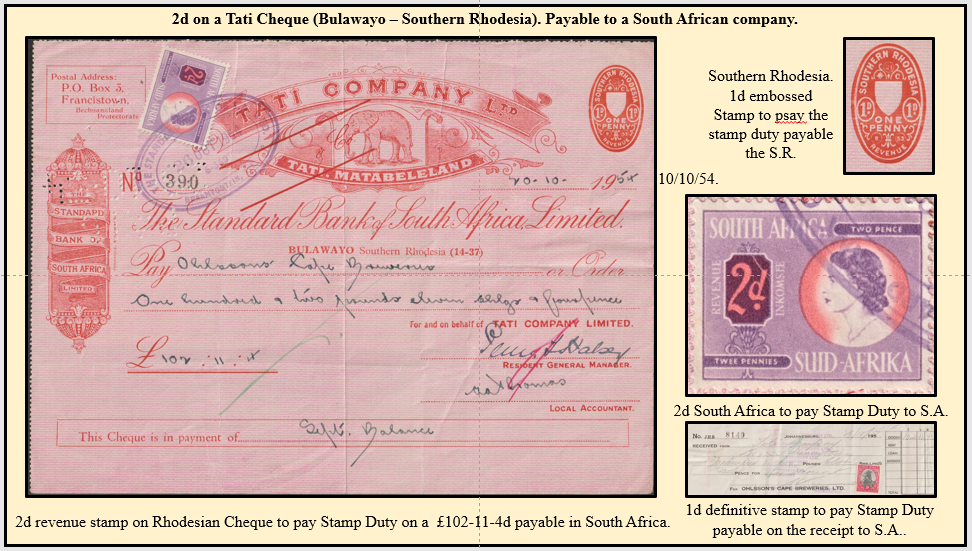 2d on a Tati Cheque (Bulawayo – Southern Rhodesia). Payable to a South African company.
Postal Address:
P.O. Box 3,
Francistown,
Bechuanaland
Protectorate
TATI COMPANY LTD
TATI, MATABELELAND
SOUTHERN RHODESIA
1D 1D
ONE PENNY
REVENUE
No 390
20-10- 1954
The Standard Bank of South Africa, Limited.
BULAWAYO Southern Rhodesia (14-37)
THE
STANDARD
BANK OF
SOUTH AFRICA
LIMITED
Pay Ohlssons Cape Breweries or Order
One hundred & two pounds eleven shlgs & fourpence
For and on behalf of TATI COMPANY LIMITED.
£102 : 11 : 4
RESIDENT GENERAL MANAGER.
LOCAL ACCOUNTANT.
This Cheque is in payment of Sept. Balance
2d revenue stamp on Rhodesian Cheque to pay Stamp Duty on a £102-11-4d payable in South Africa.
Southern Rhodesia.
1d embossed
Stamp to psay the
stamp duty payable
the S.R.
SOUTHERN RHODESIA
1D 1D
ONE PENNY
REVENUE
10/10/54.
SOUTH AFRICA TWO PENCE
REVENUE 2d INKOMSTE
TWEE PENNIES SUID-AFRIKA
2d South Africa to pay Stamp Duty to S.A.
No. JBB 8149 JOHANNESBURG
RECEIVED FROM
POUNDS
SHILLINGS
PENCE FOR
For OHLSSON'S CAPE BREWERIES, LTD.
1d definitive stamp to pay Stamp Duty
payable on the receipt to S.A..